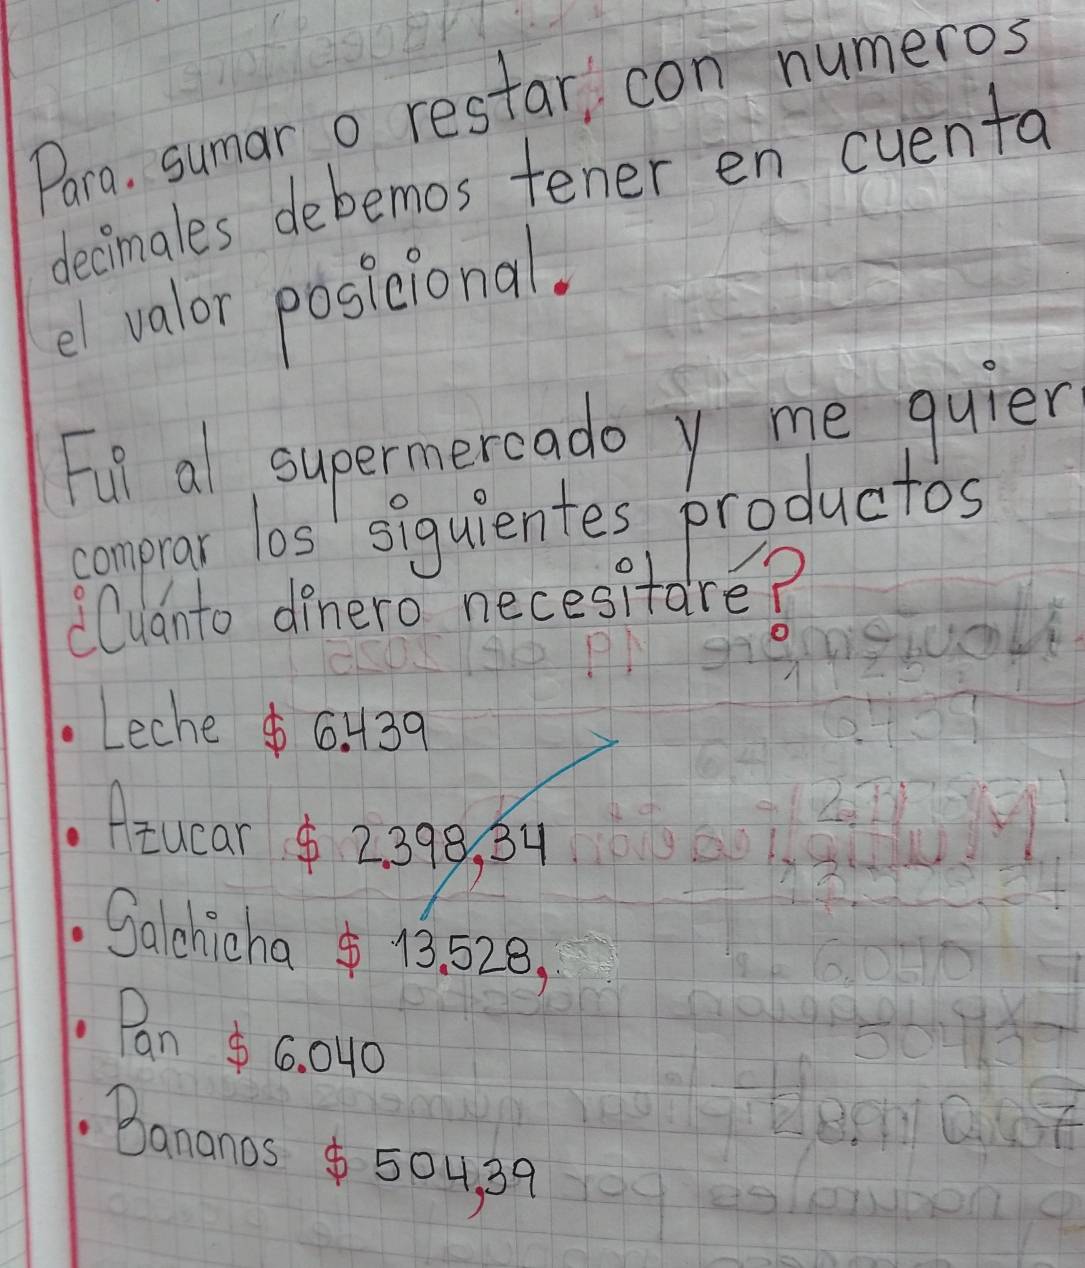 Para. sumar o restar, con numeros
decimales debemos tener en cuenta
el valor posicional.
Fui al supermercado y me quier
comprar los siguientes productos
¿Cuánto dinero necesitaré?
• Leche $ 6.439
• Azucar $ 2.398,34
• Salchicha $ 13.528,
• Pan $ 6.040
• Bananos $ 504,39